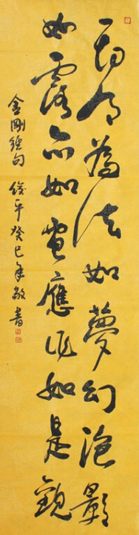 一切有為法如夢幻泡影
如露亦如電應作如是觀
金剛經句 俊平癸巳年敬書